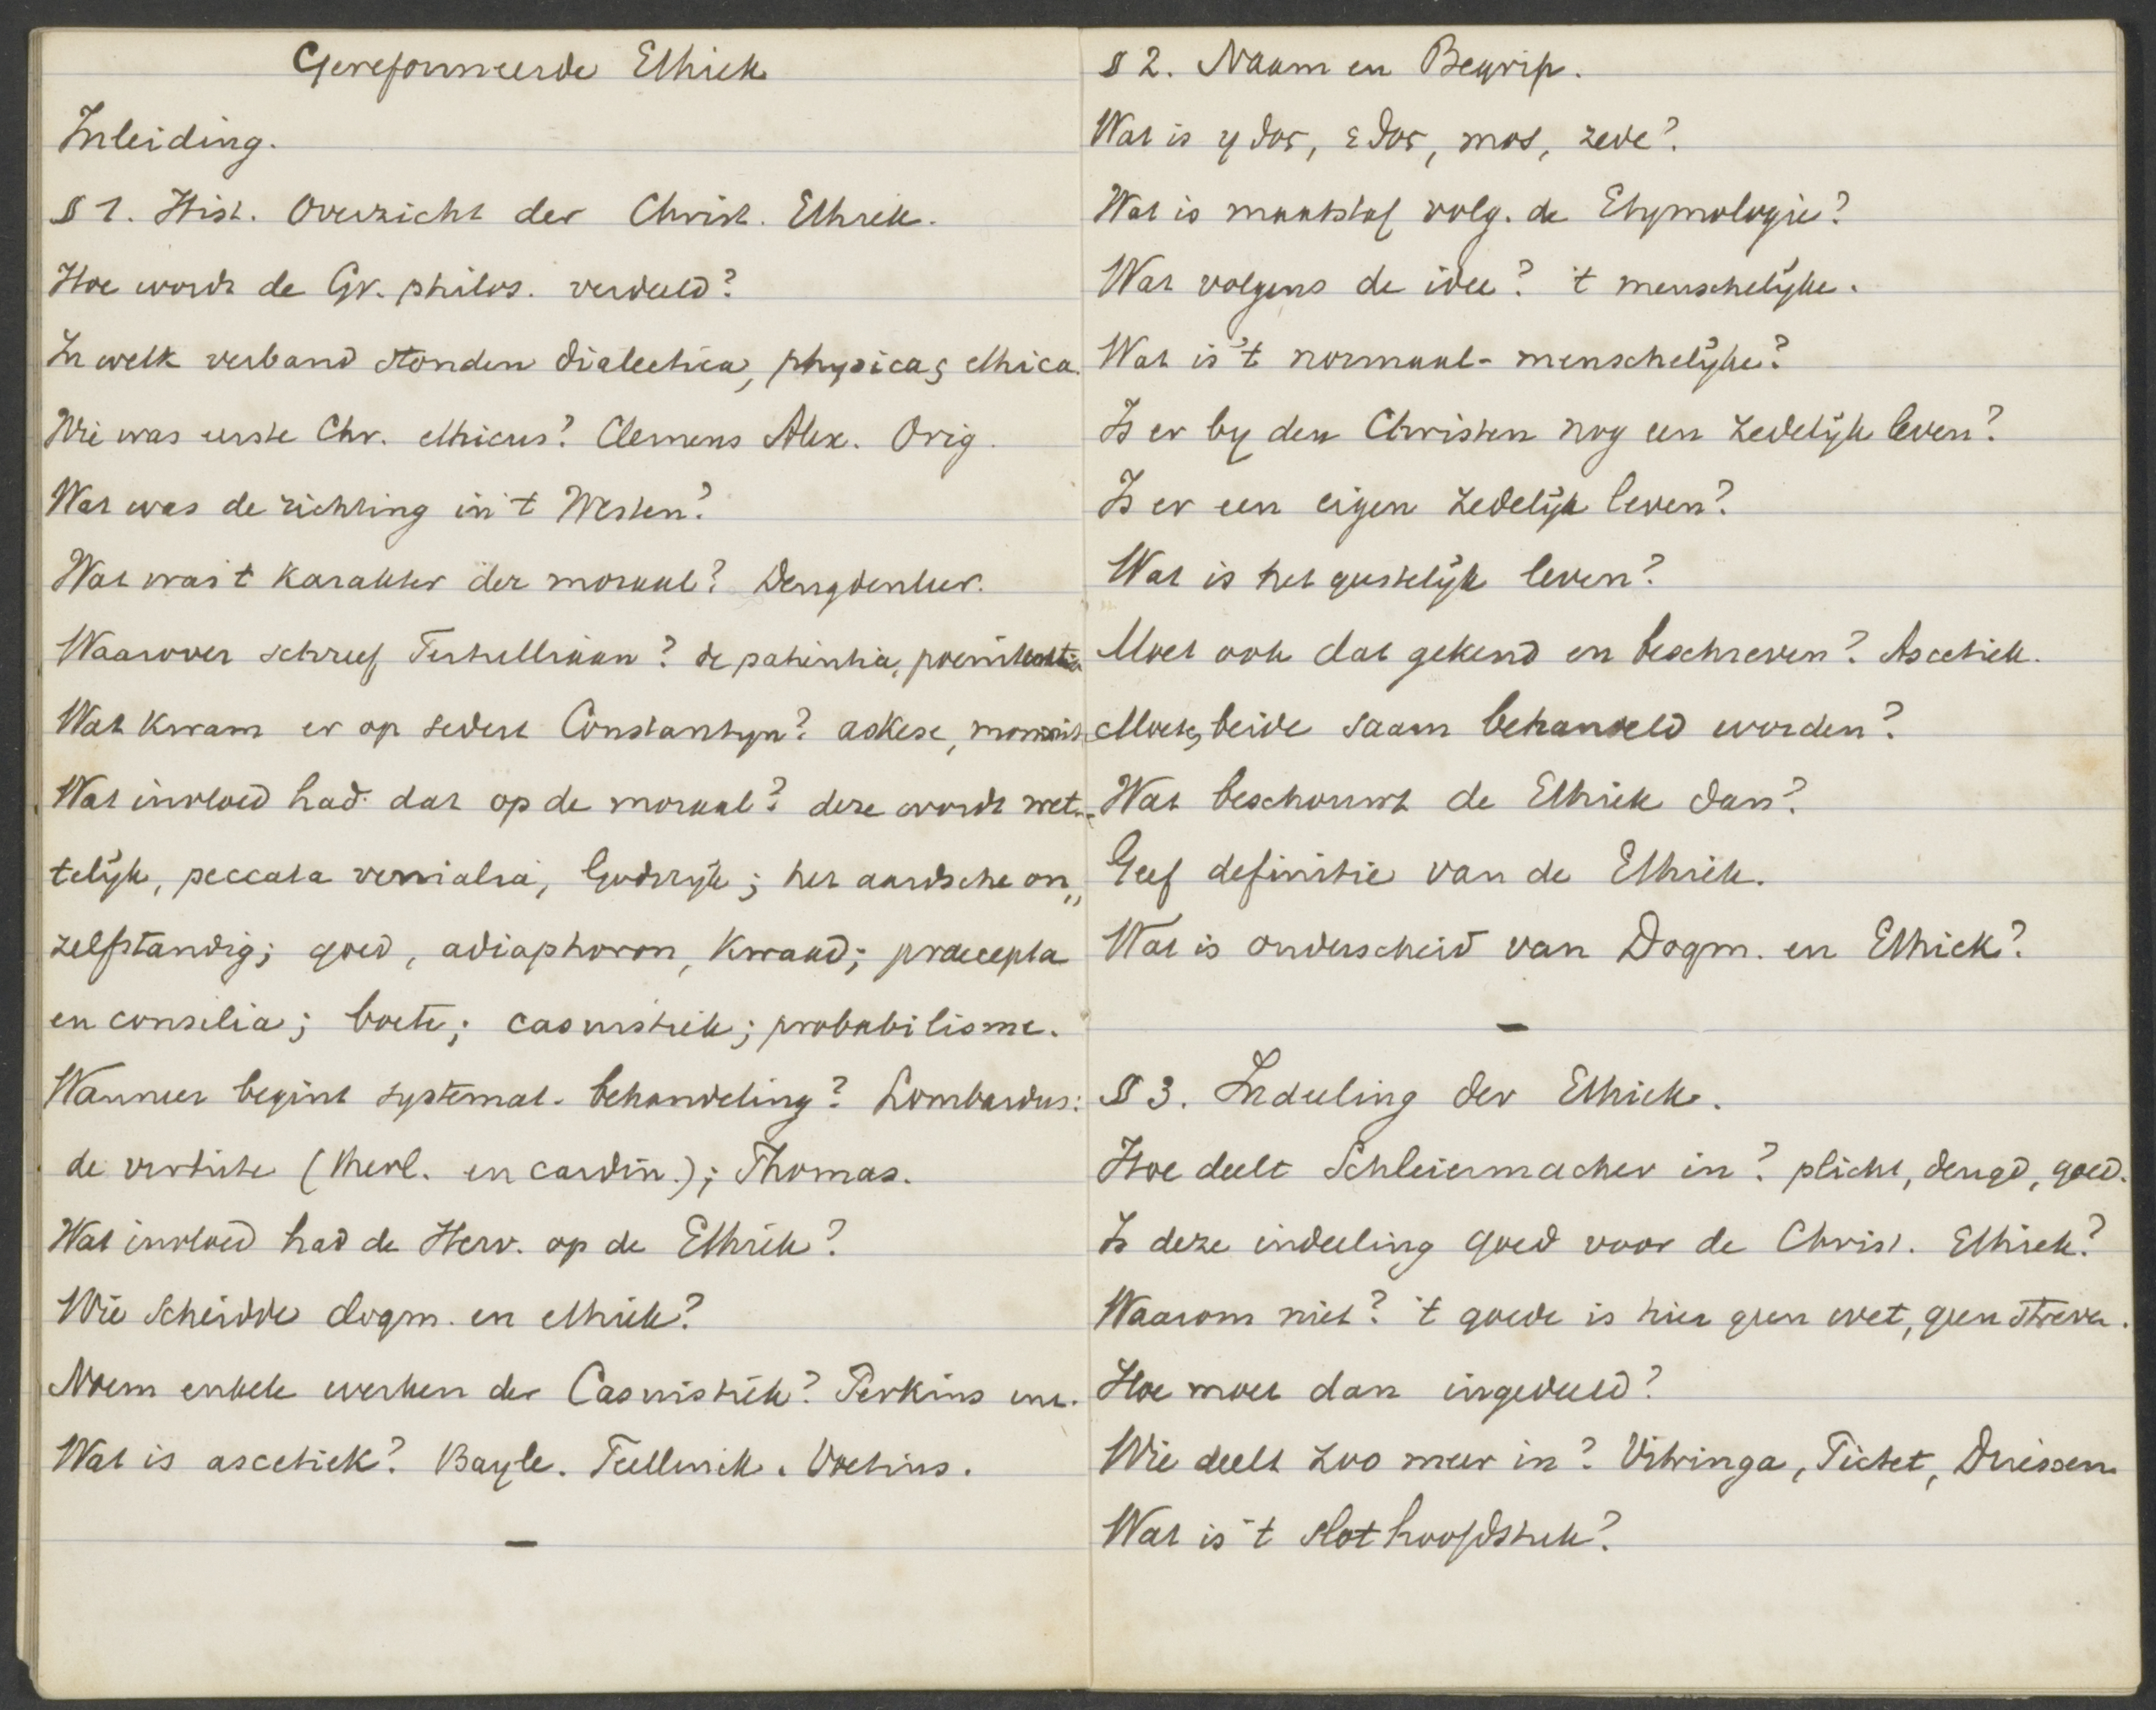 Gereformeerde Ethiek
Inleiding.
§ 1. Hist. Overzicht der Christ. Ethiek.
Hoe wordt de Gr. philos. verdeeld?
In welk verband stonden dialectica, physica, ethica.
Wie was eerste Chr. ethicus? Clemens Alex. Orig.
Wat was de richting in 't Westen?
Wat was 't karakter der moraal? Deugdenleer.
Waarover schreef Tertulliaan? de patientia, poenitentia
Wat kwam er op sedert Constantyn? askese,
Wat invloed had dat op de moraal? deze wordt wet-
telijk, peccata venialia, Godsrijk; het aardsche on„
zelfstandig; goed, adiaphoron, kwaad; praecepta
en consilia; boete; casuistiek; probabilisme.
Wanneer begint systemat. behandeling? Lombardus:
de virtute (theol. en cardin.); Thomas.
Wat invloed had de Herv. op de Ethiek?
Wie scheidde dogm. en ethiek?
Noem enkele werken der Casuistiek? Perkins enz.
Wat is ascetiek? Bayle. Teellinck. Voetius.
—
§ 2. Naam en Begrip.
Wat is ηθος, εθος, mos, zede?
Wat is maatstaf volg. de Etymologie?
Wat volgens de idee? 't menschelijke.
Wat is 't normaal-menschelijke?
Is er by den Christen nog een zedelijk leven?
Is er een eigen zedelijk leven?
Wat is het geestelijk leven?
Moet ook dat gekend en beschreven? Ascetiek.
Moeten beide saam behandeld worden?
Wat beschouwt de Ethiek dan?
Geef definitie van de Ethiek.
Wat is onderscheid van Dogm. en Ethiek?
—
§ 3. Indeeling der Ethiek.
Hoe deelt Schleiermacher in? plicht, deugd, goed.
Is deze indeeling goed voor de Christ. Ethiek?
Waarom niet? 't goede is hier geen wet, geen streven.
Hoe moet dan ingedeeld?
Wie deelt zoo meer in? Vitringa, Pictet, Driessen
Wat is 't slothoofdstuk?